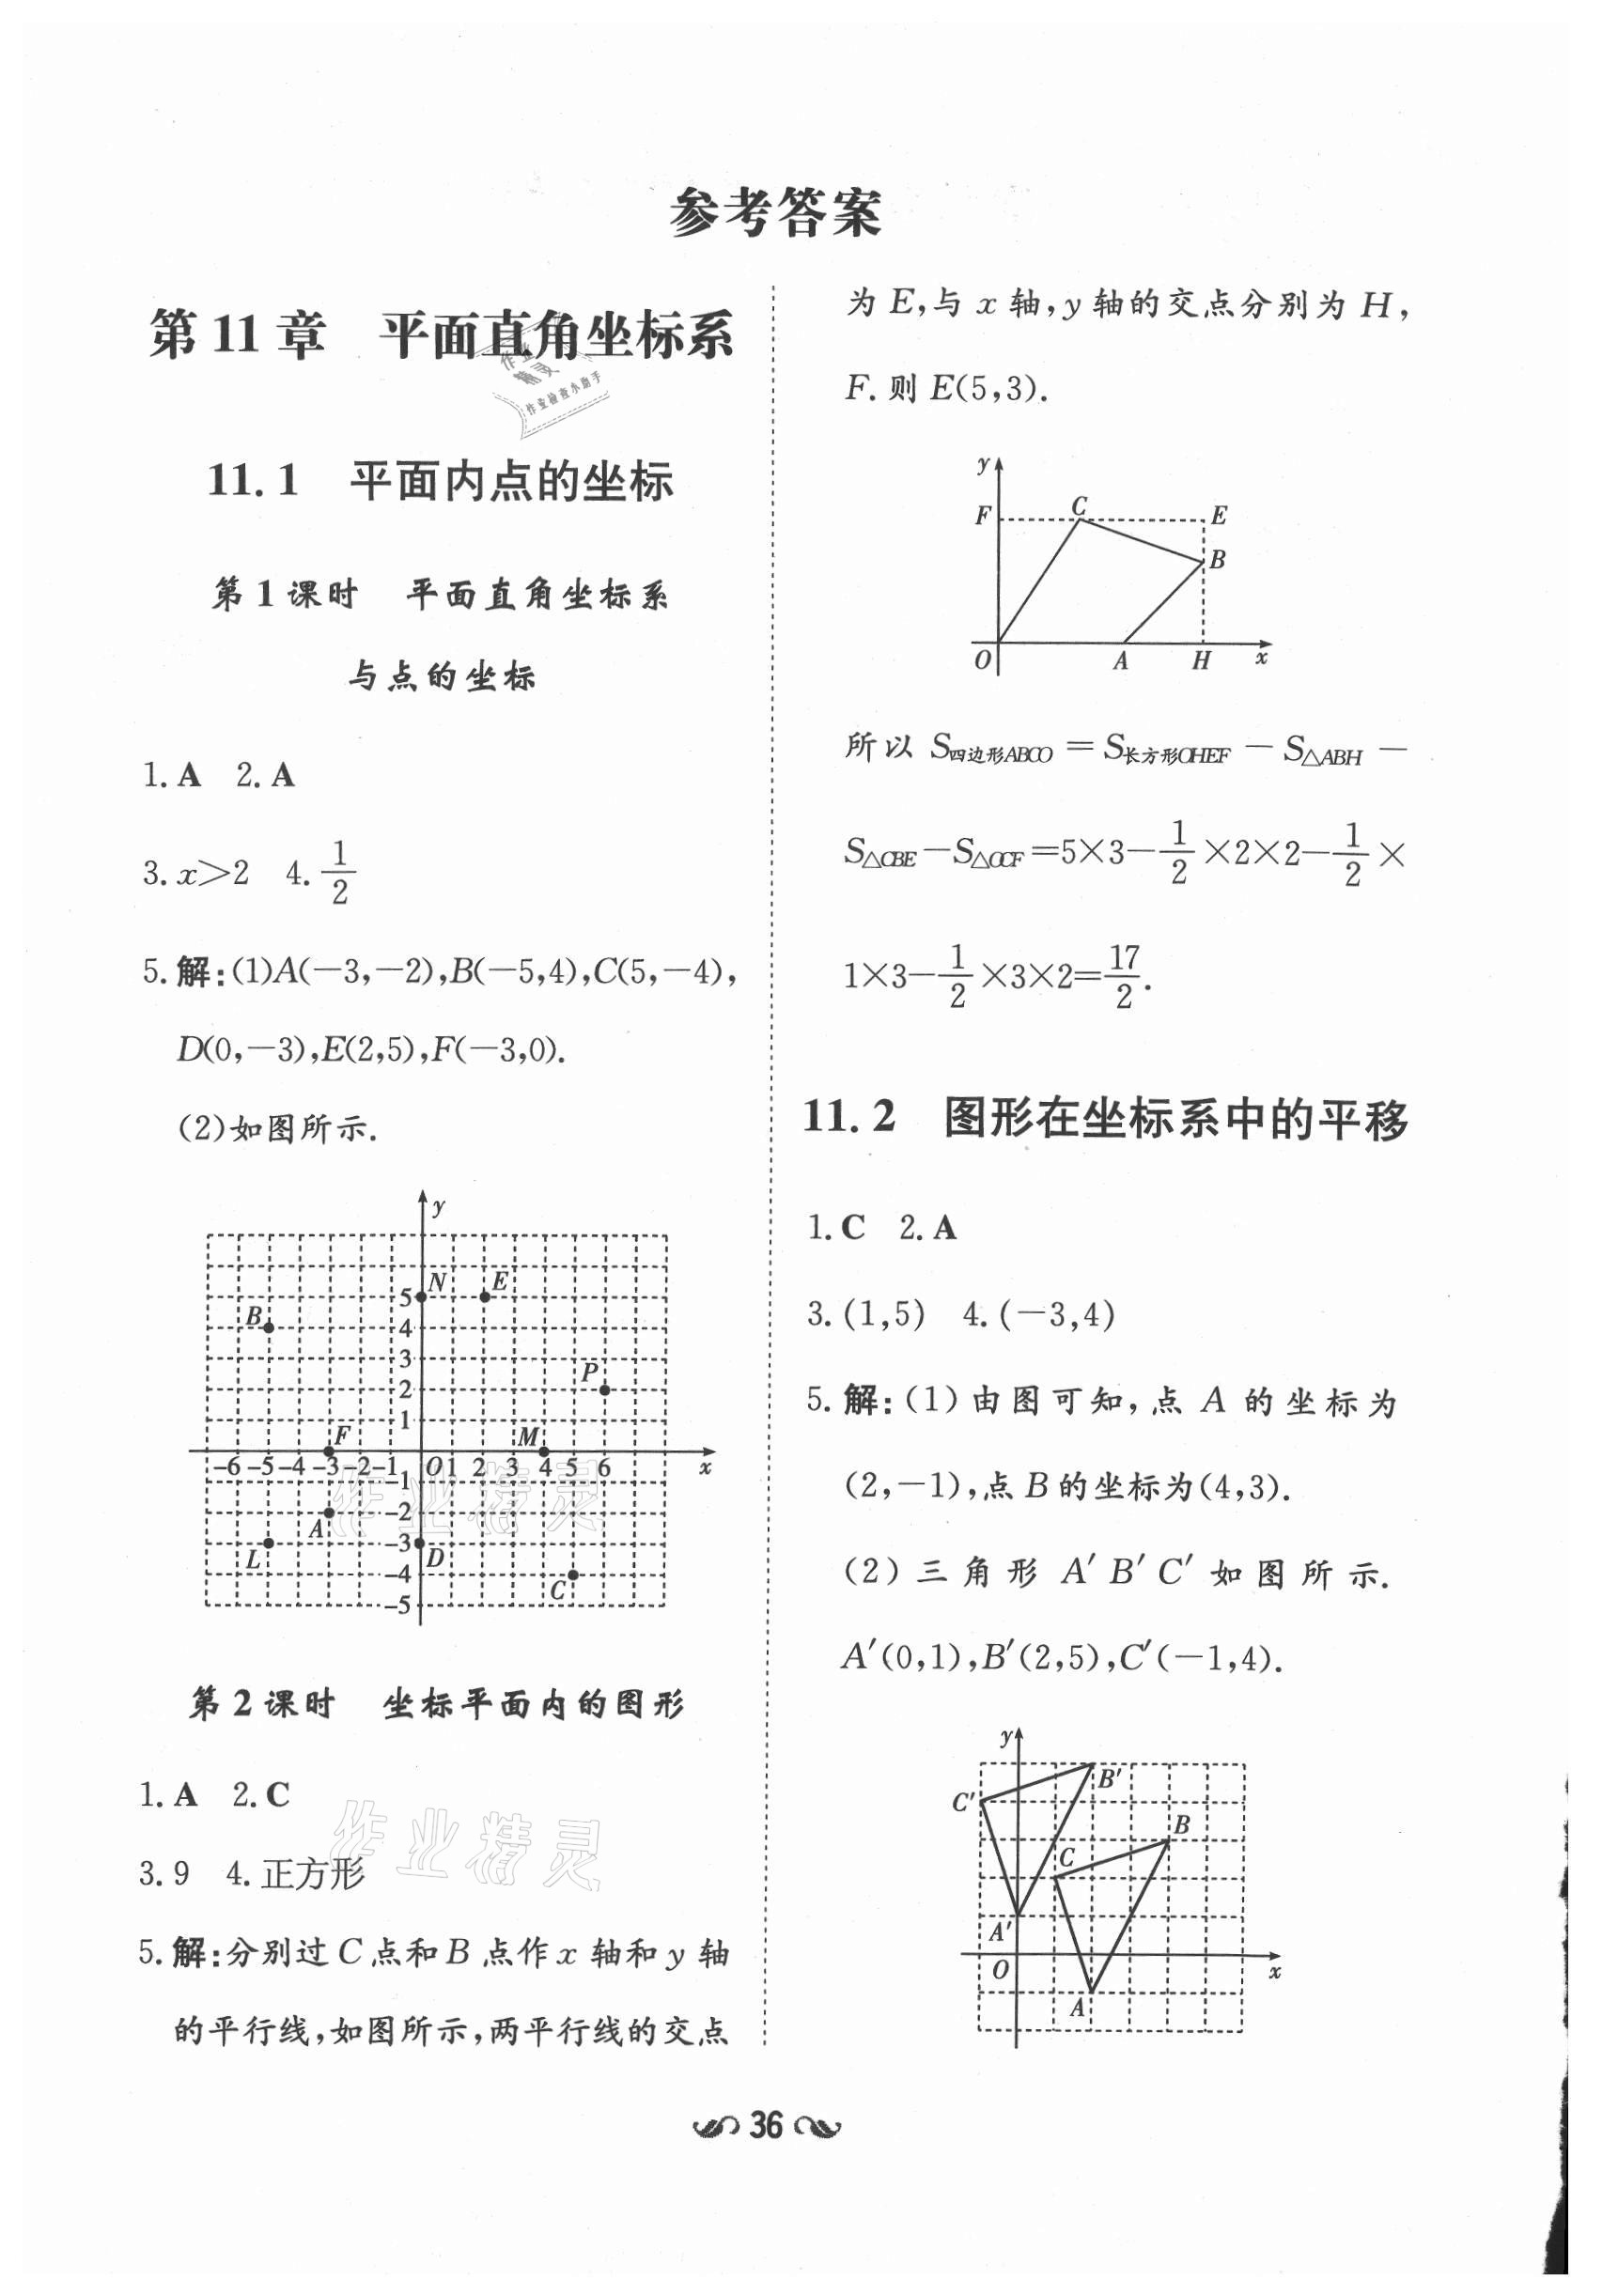 参考答案
第 11 章 平面直角坐标系
11.1 平面内点的坐标
第 1 课时 平面直角坐标系
与点的坐标
1. A 2. A
3. x＞2 4. 1/2
5. 解:(1)A(－3,－2),B(－5,4),C(5,－4),
D(0,－3),E(2,5),F(－3,0).
(2)如图所示.
y
N E
5
B
4
3
P
2
1
F M
-6 -5 -4 -3 -2 -1 O 1 2 3 4 5 6 x
-1
-2
A
-3
L D
-4
C
-5
第 2 课时 坐标平面内的图形
1. A 2. C
3. 9 4. 正方形
5. 解:分别过 C 点和 B 点作 x 轴和 y 轴
的平行线,如图所示,两平行线的交点
为 E,与 x 轴,y 轴的交点分别为 H,
F. 则 E(5,3).
y
F C E
B
O A H x
所以 S四边形ABCO ＝ S长方形OHEF － S△ABH －
S△CBE－S△OCF＝5×3－1/2×2×2－1/2×
1×3－1/2×3×2＝17/2.
11.2 图形在坐标系中的平移
1. C 2. A
3. (1,5) 4. (－3,4)
5. 解:(1)由图可知,点 A 的坐标为
(2,－1),点 B 的坐标为(4,3).
(2)三角形 A′B′C′如图所示.
A′(0,1),B′(2,5),C′(－1,4).
y
B′
C′
B
C
A′
O x
A
36
作业精灵
作业检查小助手
作业精灵
作业精灵